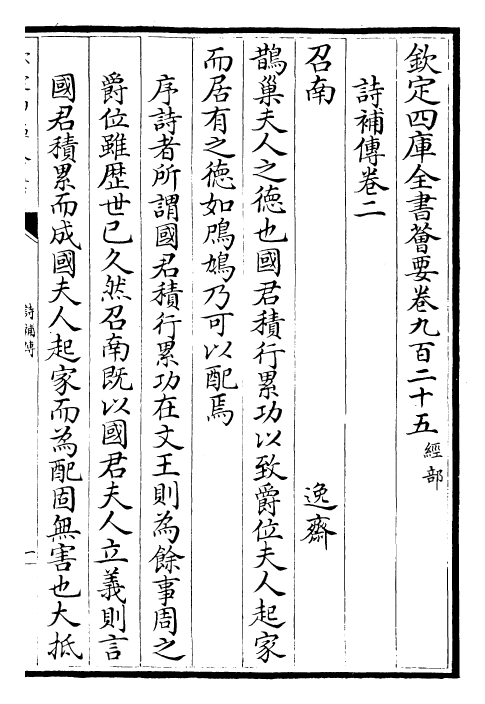 欽定四庫全書薈要卷九百二十五 經部
詩補傳卷二
逸齋
召南
鵲巢夫人之徳也國君積行累功以致爵位夫人起家
而居有之徳如鳲鳩乃可以配焉
序詩者所謂國君積行累功在文王則為餘事周之
爵位雖歴世已久然召南既以國君夫人立義則言
國君積累而成國夫人起家而為配固無害也大抵
詩補傳
一